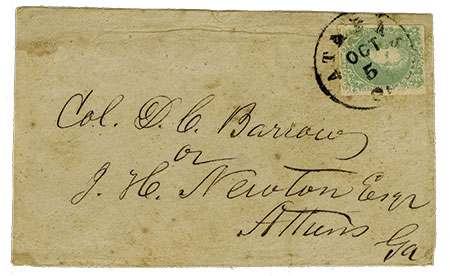 OCT
5
Col. D. C. Barrow
or
J. H. Newton Esqr
Athens
Ga